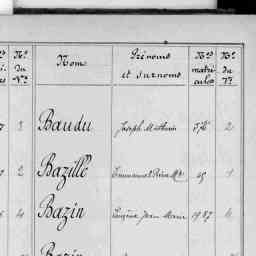 Nos Nos du Vt Nom Prénoms et Surnoms Nos matricules No du Vt
3 Baudu Joseph Mathurin 2
2 Bazille Emmanuel 45 1
4 Bazin Eugène Jean Marie 1987 4
Bazin